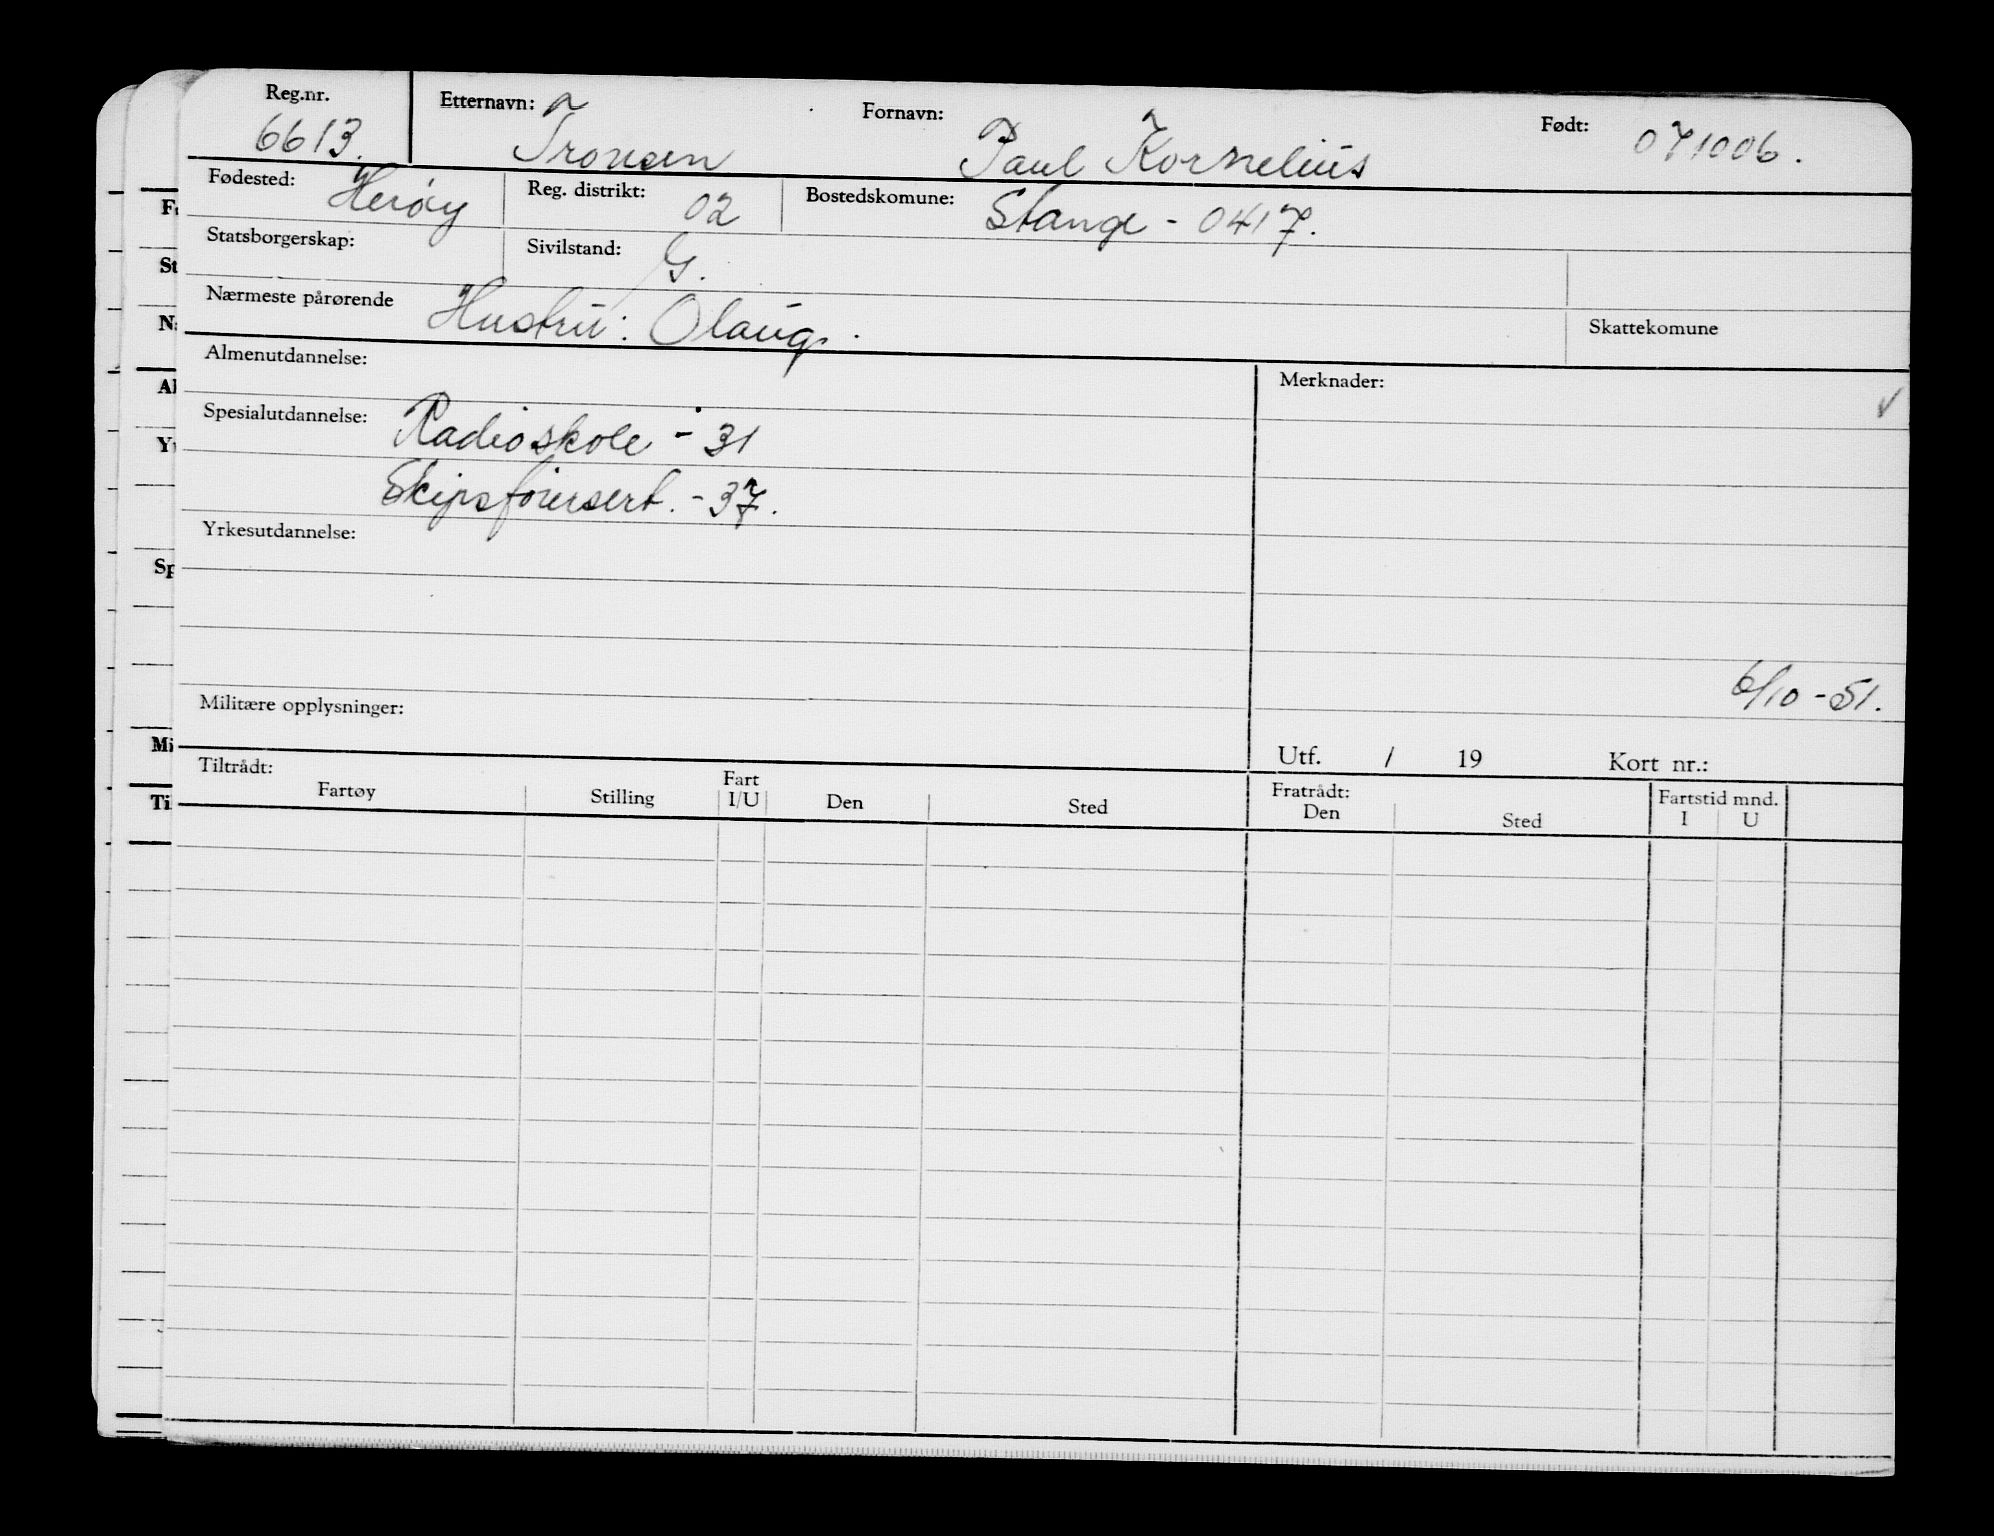 Reg.nr. Etternavn: Fornavn: Født:
6613. Tronsen Paul Kornelius 071006.
Fødested: Herøy Reg. distrikt: 02 Bostedskomune: Stange - 0417.
Statsborgerskap: Sivilstand: G.
Nærmeste pårørende Hustru: Olaug. Skattekomune
Almenutdannelse: Merknader: ✓
Spesialutdannelse: Radioskole - 31
Skipsførersert. - 37.
Yrkesutdannelse:
6/10 - 51.
Militære opplysninger:
Utf. / 19 Kort nr.:
Tiltrådt: Fratrådt:
Fartøy Stilling Fart I/U Den Sted Den Sted Fartstid mnd. I U
F
St
N
Al
Y
Sp
Mi
Ti